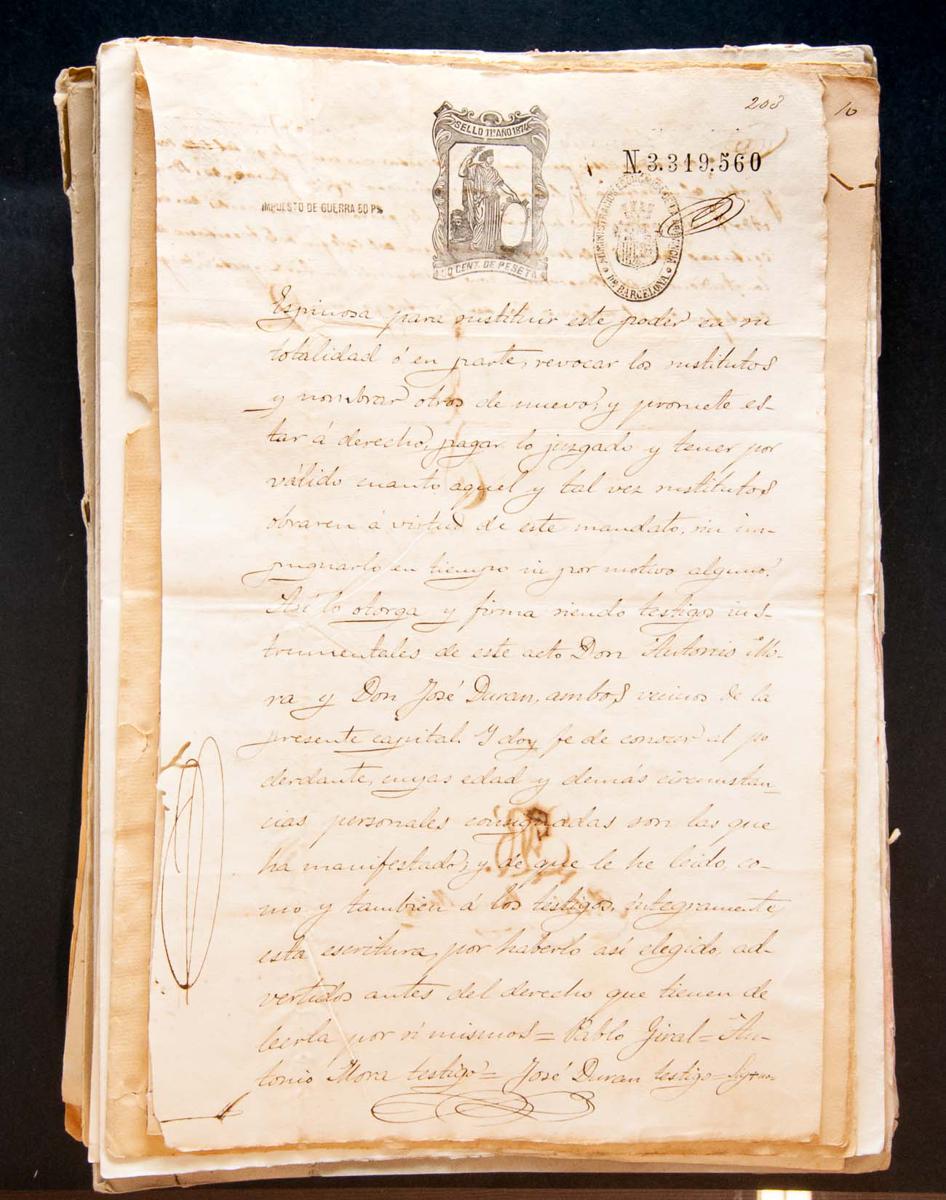 203
10
SELLO 11º AÑO 1874
N.3.319.560
IMPUESTO DE GUERRA 50 Ps
ADMINISTRACION ECONOMICA DE LA PROVINCIA
DE BARCELONA
50 CENT. DE PESETA
Espinosa para sustituir este poder en su
totalidad ó en parte, revocar los sustitutos
y nombrar otros de nuevo; y promete es-
tar á derecho, pagar lo juzgado y tener por
válido cuanto aquel y tal vez sustitutos
obraren á virtud de este mandato, sin im-
pugnarlo en tiempo ni por motivo alguno.
Así lo otorga y firma siendo testigos ins-
trumentales de este acto Don Antonio Mo-
ra y Don José Duran, ambos vecinos de la
presente capital. Y doy fe de conocer al po
derdante, cuyas edad y demás circunstan-
cias personales consignadas son las que
ha manifestado; y de que le he leido, co-
mo y tambien á los testigos, íntegramente
esta escritura, por haberlo así elegido, ad-
vertidos antes del derecho que tienen de
leerla por sí mismos = Pablo Giral = An-
tonio Mora testigo = José Duran testigo = Sig+no